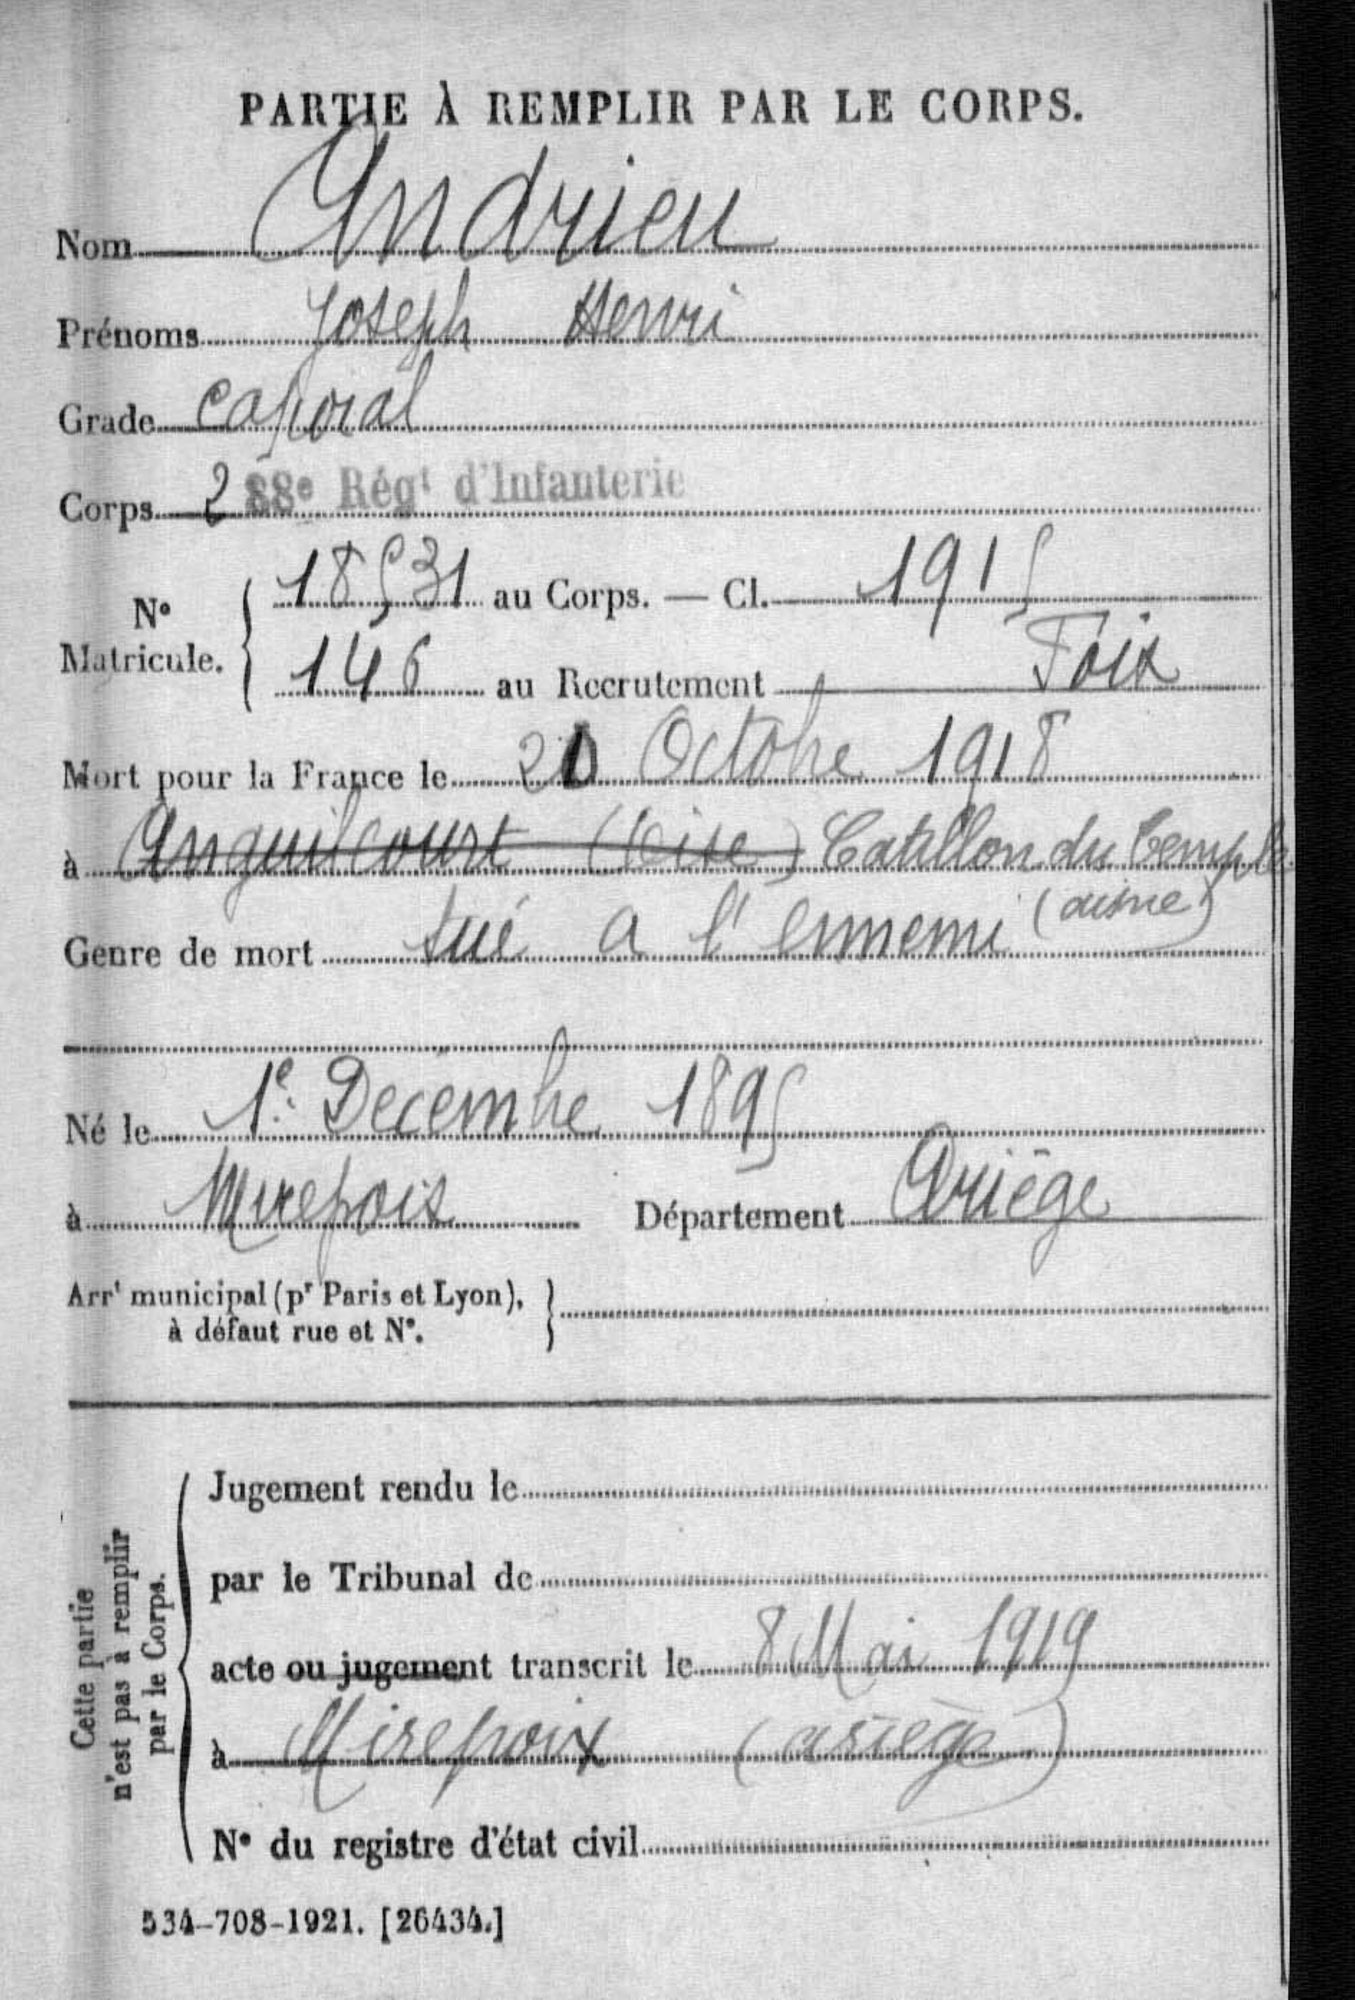 PARTIE À REMPLIR PAR LE CORPS.
Nom Andrieu
Prénoms Joseph Henri
Grade Caporal
Corps 2 88e Régt d'Infanterie
N° Matricule. { 18531 au Corps. — Cl. 1915
146 au Recrutement Foix
Mort pour la France le 20 Octobre 1918
à Anguilcourt (Oise) Catillon du Temple
(aisne)
Genre de mort tué a l'ennemi
Né le 1e Decembre 1895
à Mirepoix Département Ariège
Arrt municipal (pr Paris et Lyon), à défaut rue et N°.
Cette partie n'est pas à remplir par le Corps.
Jugement rendu le
par le Tribunal de
acte ou jugement transcrit le 8 Mai 1919
à Mirepoix (ariège)
N° du registre d'état civil
534-708-1921. [26434.]